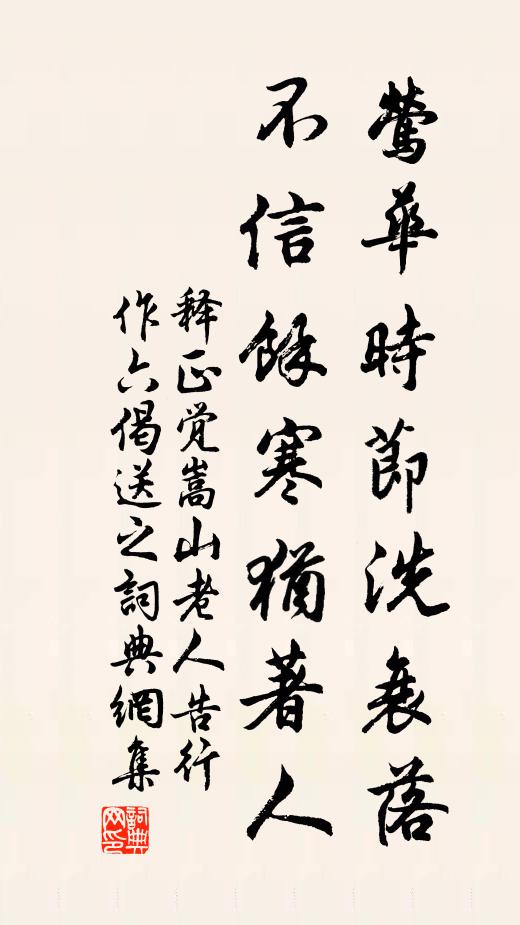 鶯華時節洗衰落
不信餘寒猶著人
释正觉嵩山老人告行
作六偈送之詞典網集
詞典
网印